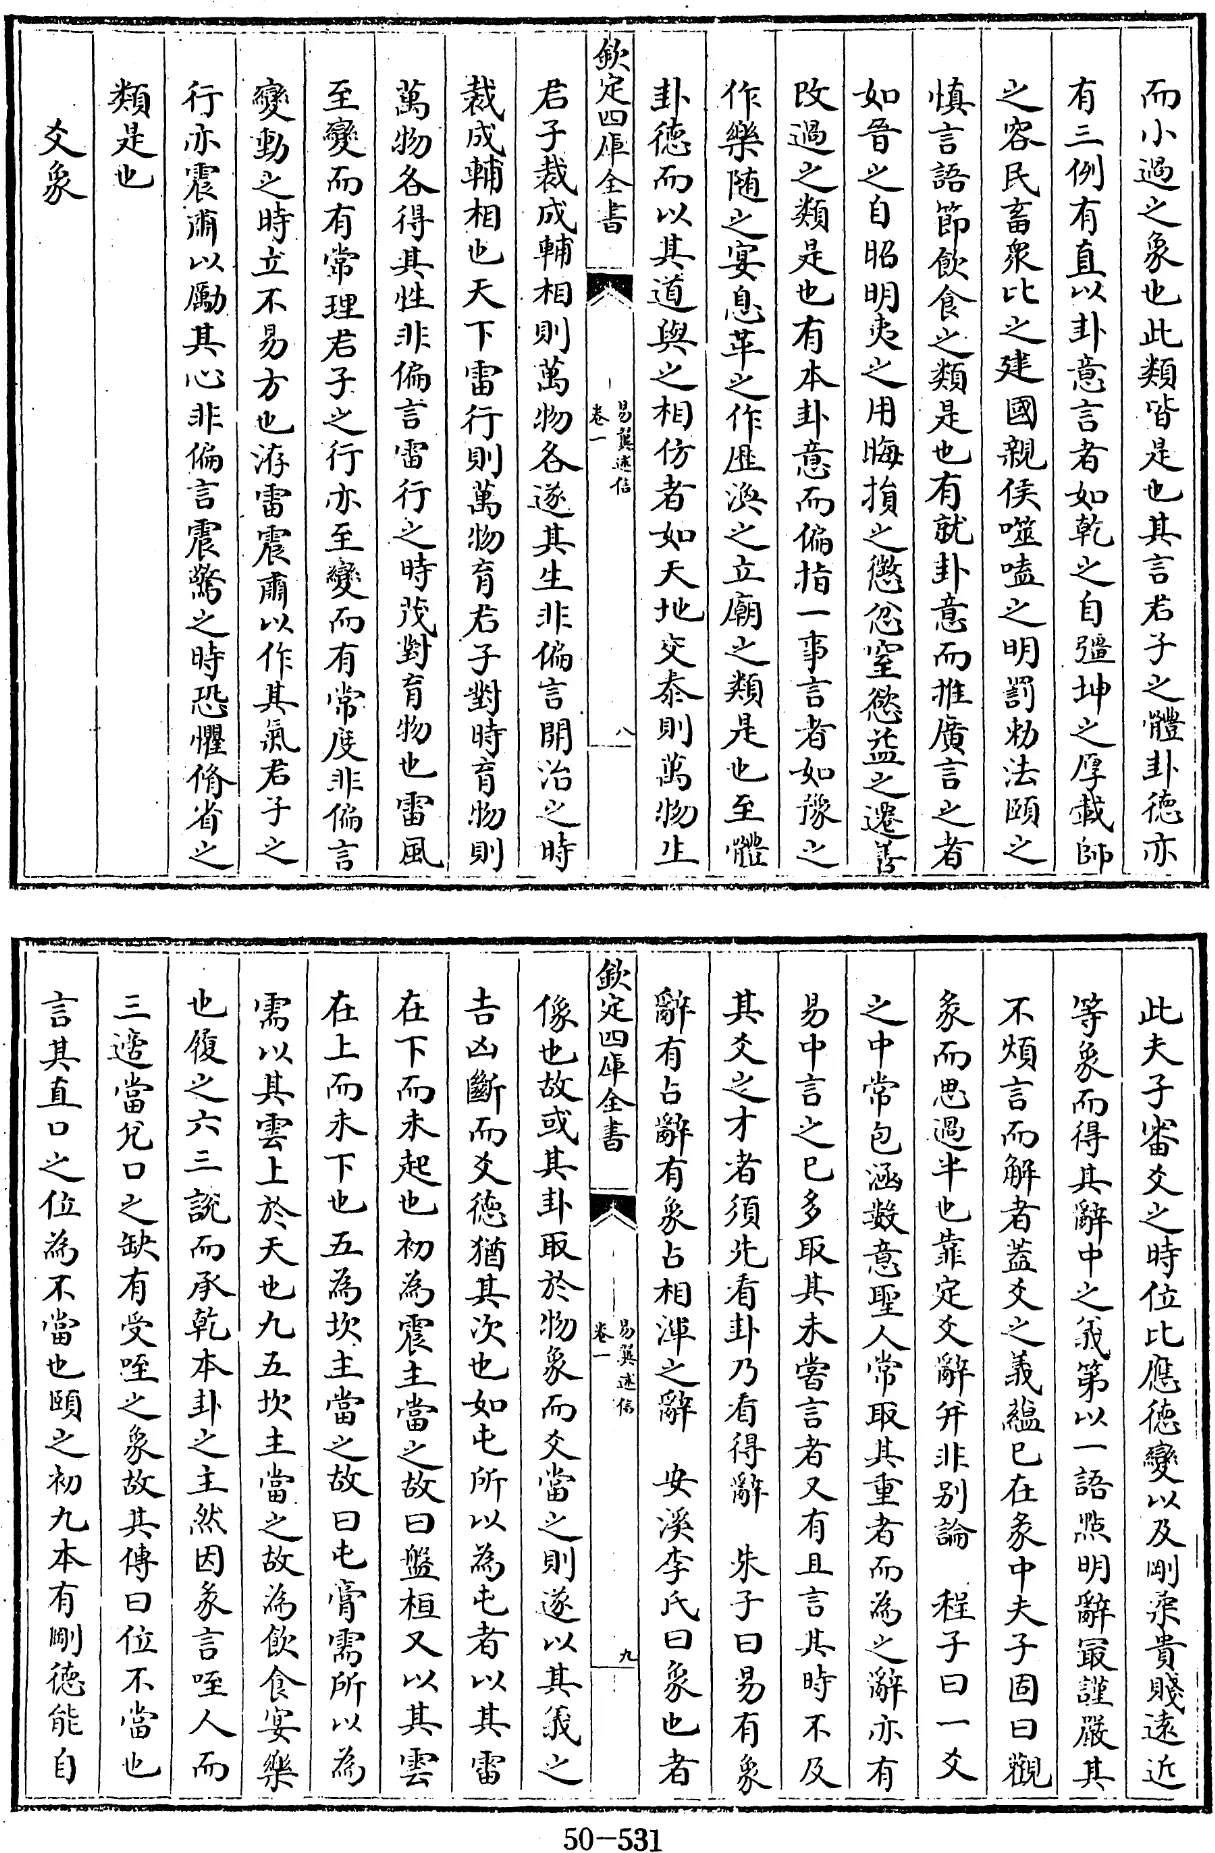 而小過之象也此類皆是也其言君子之體卦德亦
有三例有直以卦意言者如乾之自彊坤之厚載師
之容民畜衆比之建國親侯噬嗑之明罰勑法頤之
慎言語節飲食之類是也有就卦意而推廣言之者
如晉之自昭明夷之用晦損之懲忿窒慾益之遷善
改過之類是也有本卦意而偏指一事言者如豫之
作樂随之宴息革之作歴渙之立廟之類是也至體
卦德而以其道與之相仿者如天地交泰則萬物生
欽定四庫全書
易翼述信
卷一
八
君子裁成輔相則萬物各遂其生非偏言開治之時
裁成輔相也天下雷行則萬物育君子對時育物則
萬物各得其性非偏言雷行之時茂對育物也雷風
至變而有常理君子之行亦至變而有常度非偏言
變動之時立不易方也洊雷震肅以作其氣君子之
行亦震肅以勵其心非偏言震驚之時恐懼脩省之
類是也
爻象
此夫子審爻之時位比應德變以及剛柔貴賤遠近
等象而得其辭中之義第以一語點明辭最謹嚴其
不煩言而解者蓋爻之義蘊已在彖中夫子固曰觀
彖而思過半也靠定爻辭弁非别論 程子曰一爻
之中常包涵數意聖人常取其重者而為之辭亦有
易中言之已多取其未嘗言者又有且言其時不及
其爻之才者須先看卦乃看得辭 朱子曰易有象
辭有占辭有象占相渾之辭 安溪李氏曰象也者
欽定四庫全書
易翼述信
卷一
九
像也故或其卦取於物象而爻當之則遂以其義之
吉凶斷而爻德猶其次也如屯所以為屯者以其雷
在下而未起也初為震主當之故曰盤桓又以其雲
在上而未下也五為坎主當之故曰屯膏需所以為
需以其雲上於天也九五坎主當之故為飲食宴樂
也履之六三說而承乾本卦之主然因彖言咥人而
三適當兌口之缺有受咥之象故其傳曰位不當也
言其直口之位為不當也頤之初九本有剛德能自
50-531